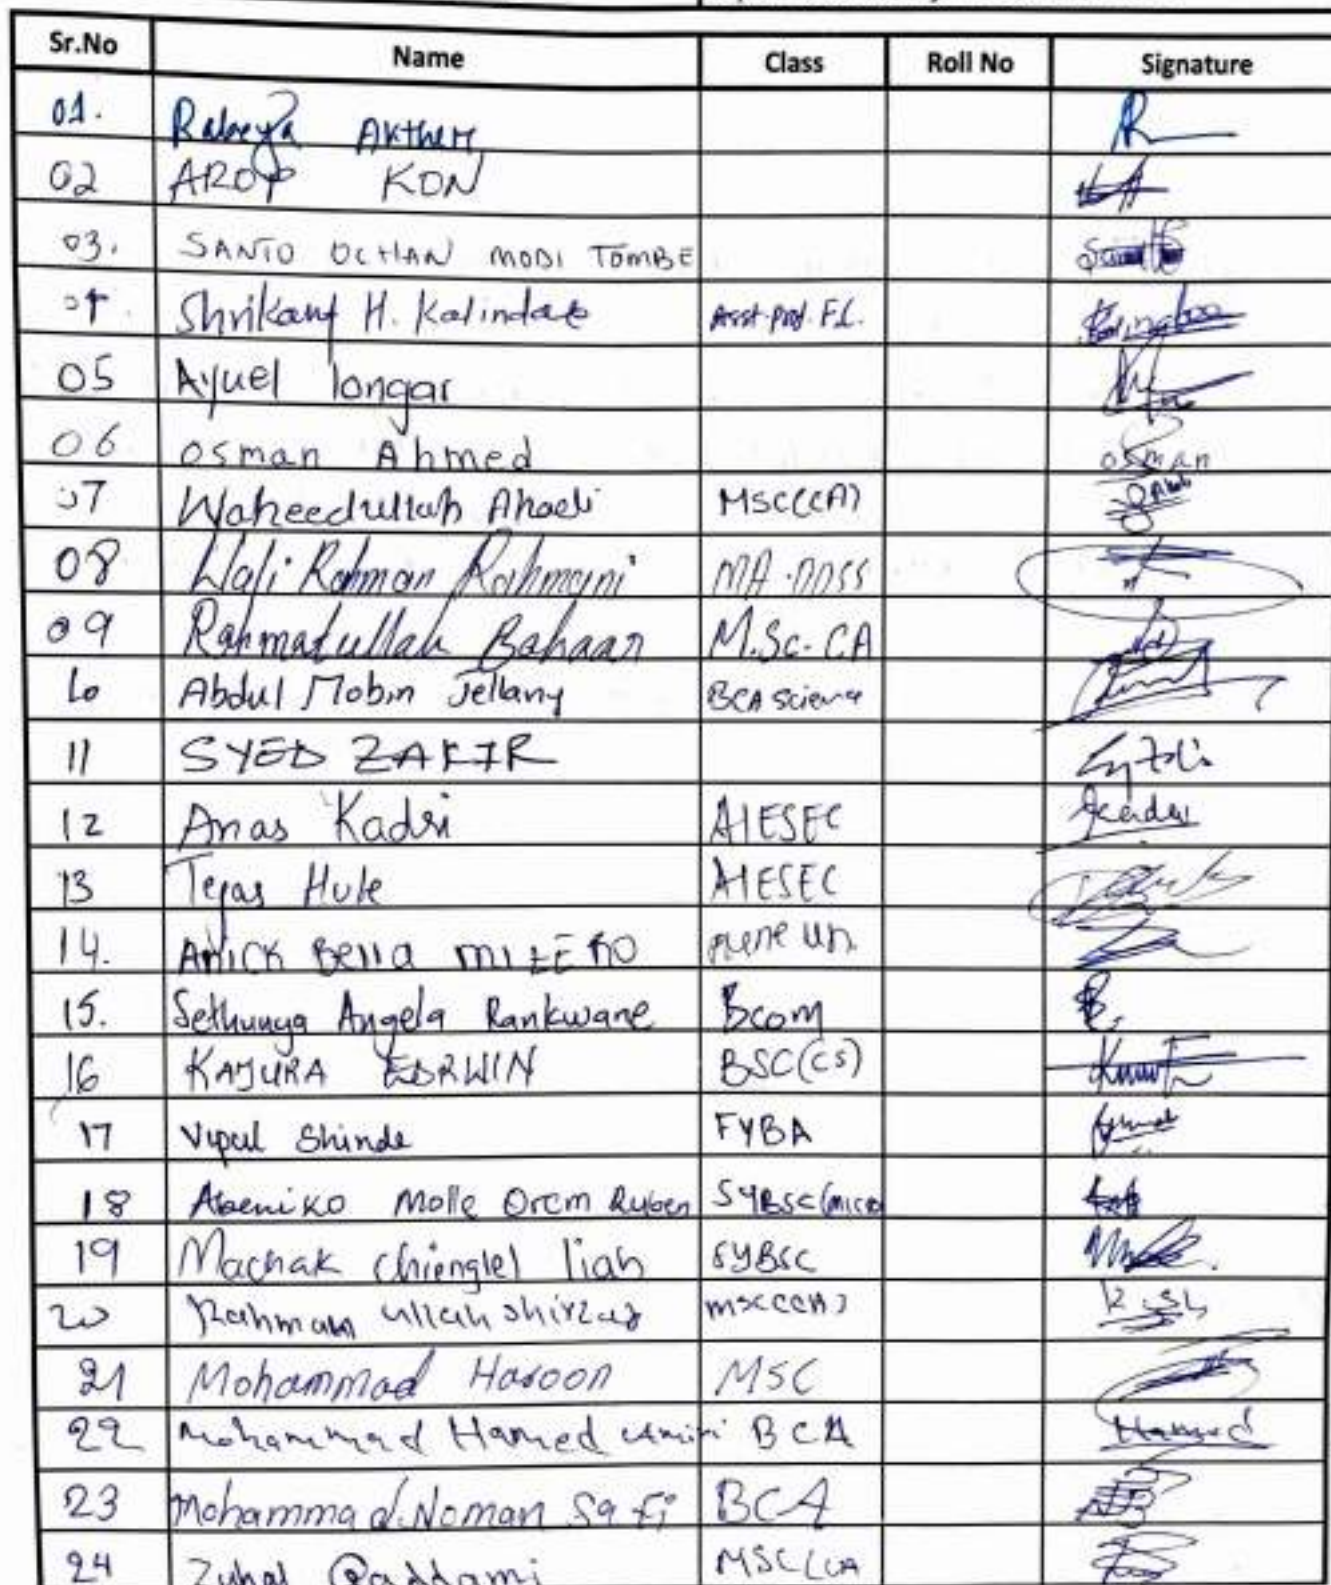 Sr.No Name Class Roll No Signature
01. Rabeya AKtheR
02 AROP KON
03. SANTO OCHAN MODI TOMBE
04. Shrikant H. Kalindate Asst. Prof. F.L.
05 Ayuel longar
06 osman Ahmed osman
07 Waheedullah Ahadi MSC(CA)
08 Wali Rahman Rahmani
09 Rahmatullah Bahaar M.Sc-CA
10 Abdul Mobin Jellany BCA Science
11 SYED ZAKIR
12 Anas Kadri AIESEC
13 Tejas Hule AIESEC
14. Bella
15. Sethunya Angela Rankwane Bcom
16 KAJURA EDRWIN BSC(CS)
17 Vipul Shinde FYBA
18 Molle Orem Ruben SYBSC(MICRO
19 Machak chienglel liah SYBSC
20 Rahman ullah MSC(CA)
21 Mohammad Haroon MSC
22 Mohammad Hamed Amiri BCA Hamed
23 Mohammad.Noman Safi BCA
24 Zuhal Qaddami MSC(CA